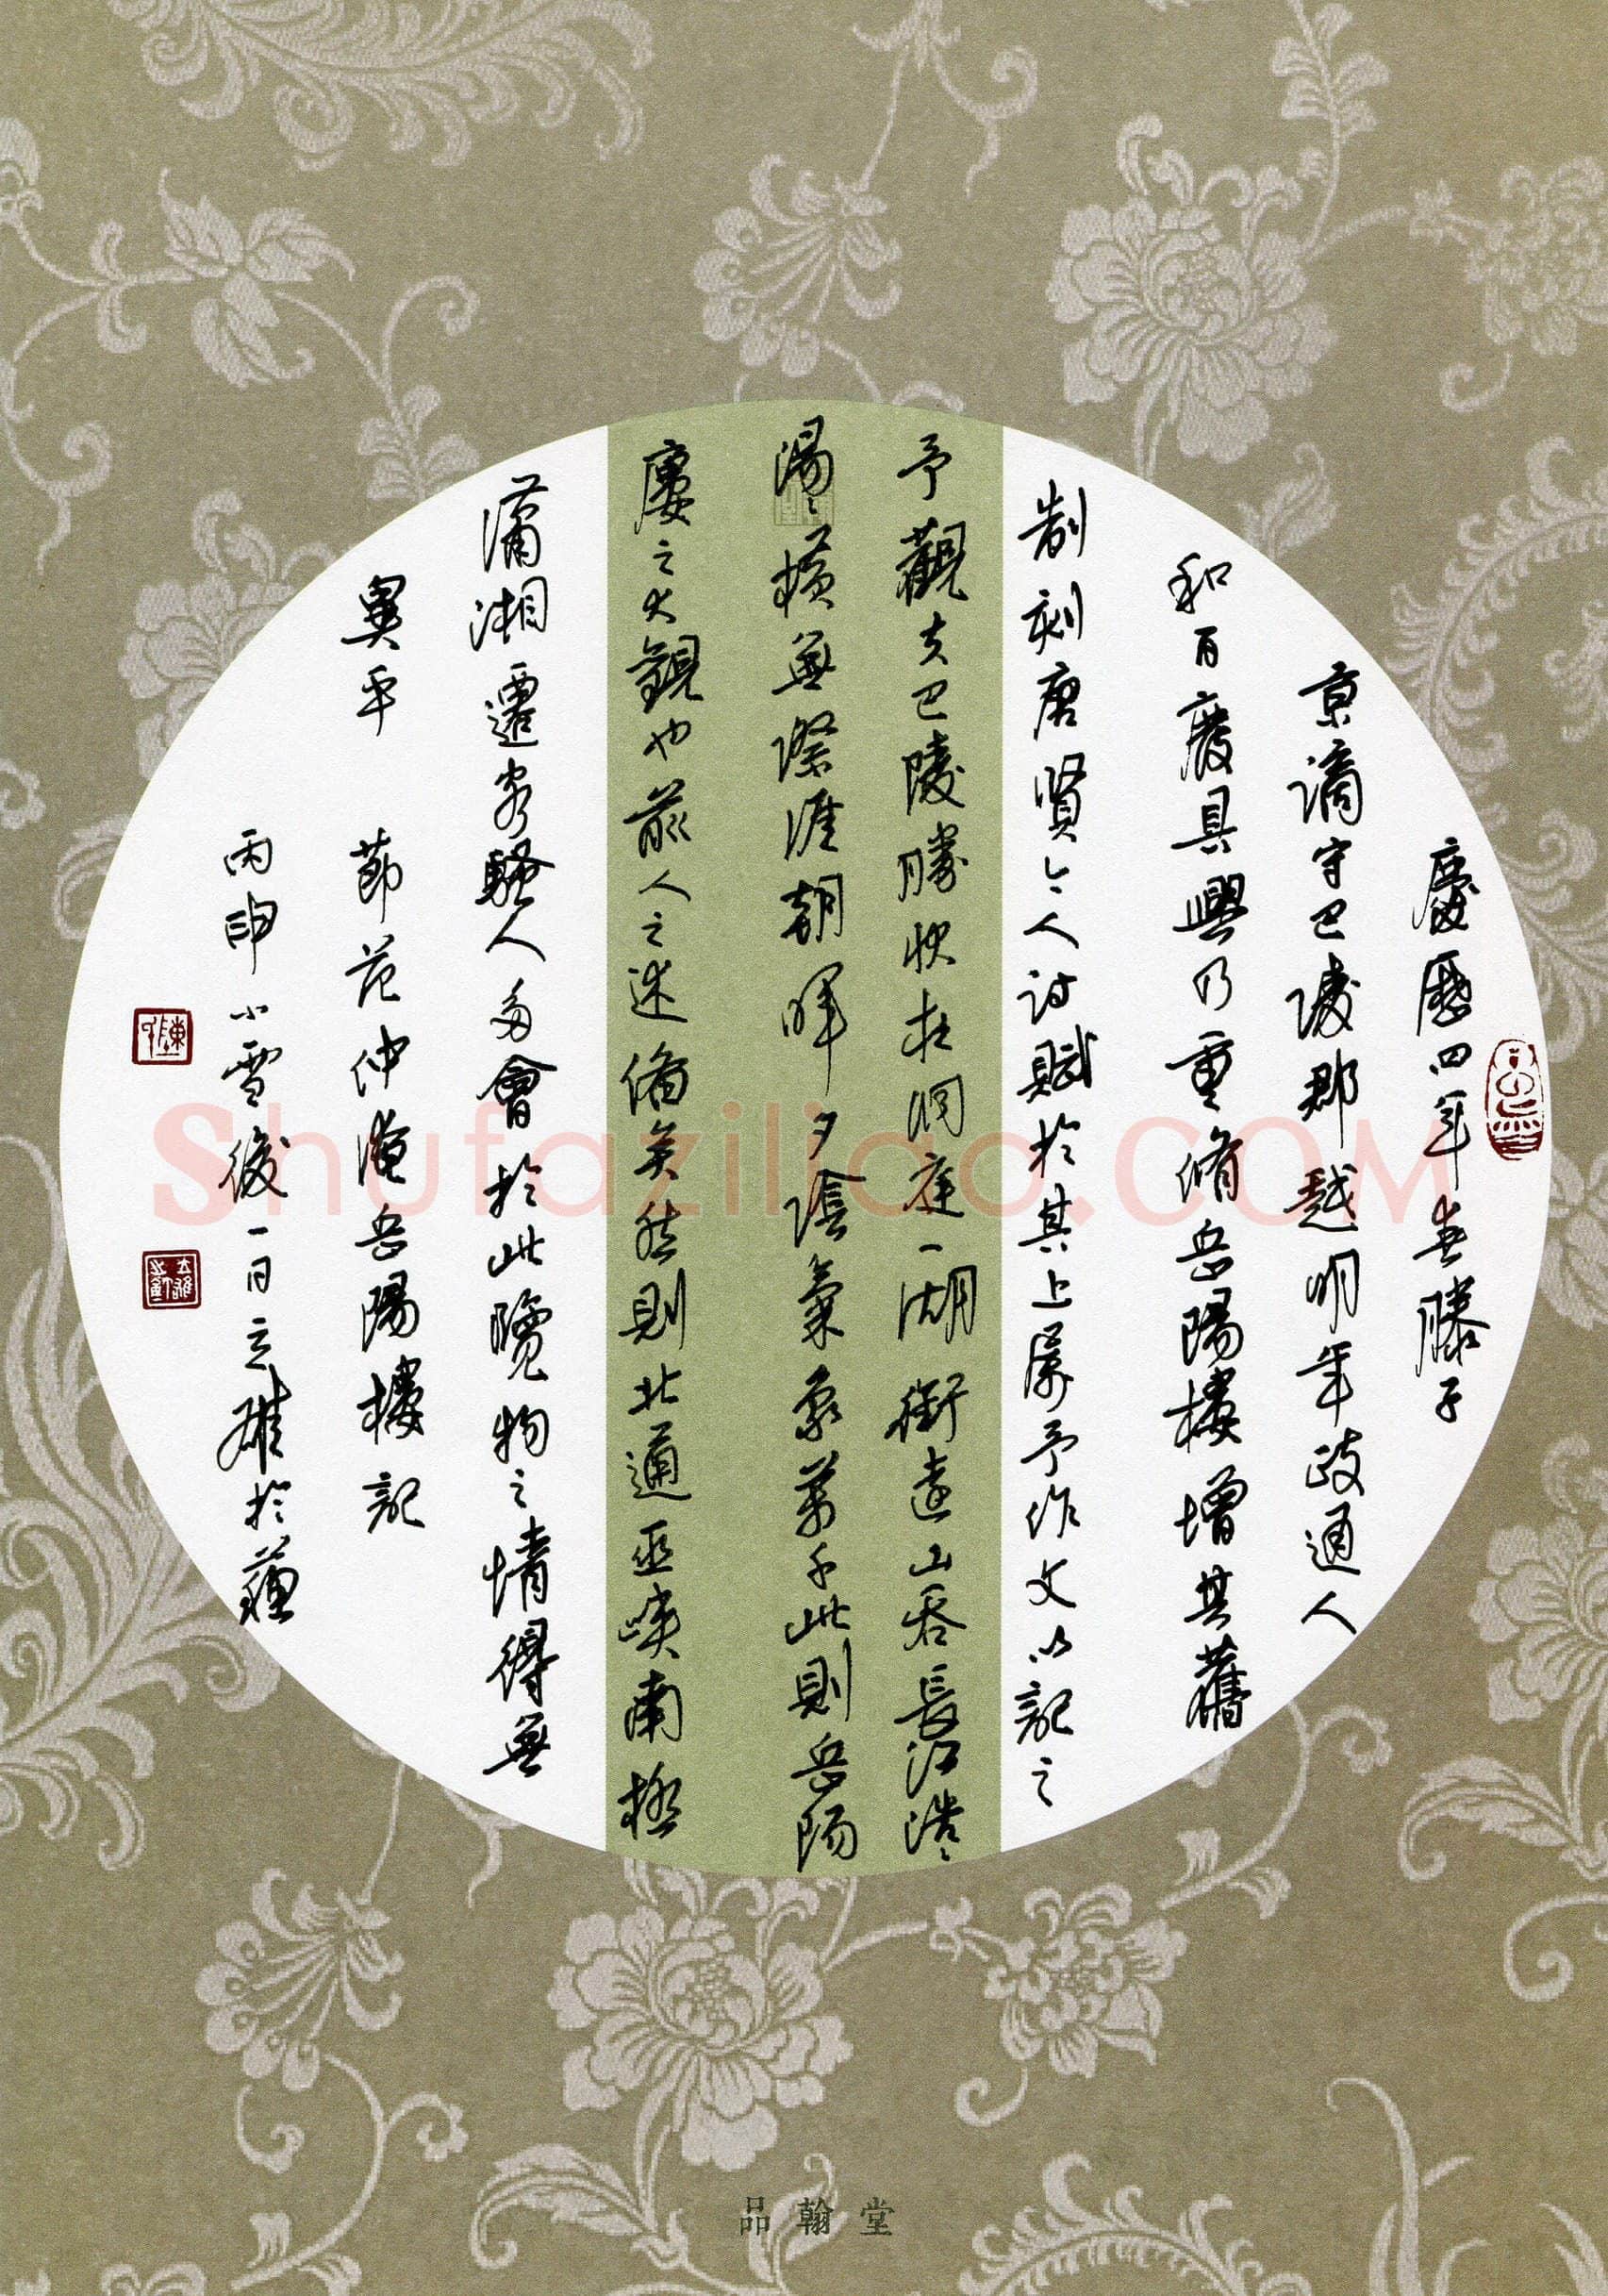 慶歷四年春滕子
京謫守巴陵郡越明年政通人
和百廢具興乃重脩岳陽樓增其舊
制刻唐賢今人詩賦於其上屬予作文以記之
予觀夫巴陵勝狀在洞庭一湖銜遠山吞長江浩〻
湯〻橫無際涯朝暉夕陰氣象萬千此則岳陽
樓之大觀也前人之述備矣然則北通巫峽南極
瀟湘遷客騷人多會於此覽物之情得無
異乎 節范仲淹岳陽樓記
丙申小雪後一日立雄於
品翰堂
Shufaziliao.COM